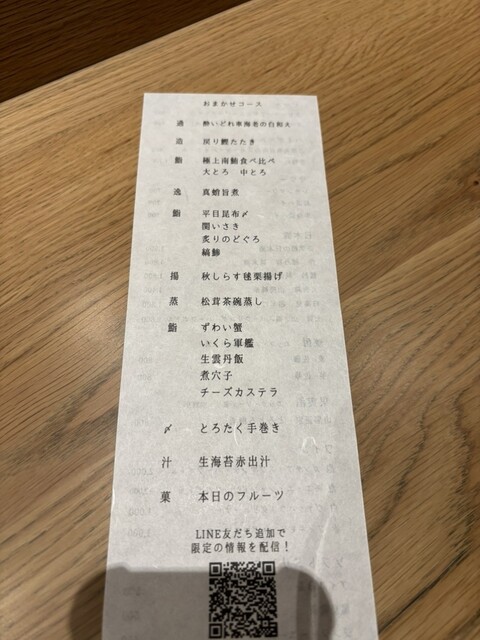 おまかせコース
酔いどれ車海老の白和え
造 戻り鰹たたき
鮨 極上南鮪食べ比べ
大とろ 中とろ
逸 真蛸旨煮
鮨 平目昆布〆
関いさき
炙りのどぐろ
縞鯵
揚 秋しらす毬栗揚げ
蒸 松茸茶碗蒸し
鮨 ずわい蟹
いくら軍艦
生雲丹飯
煮穴子
チーズカステラ
〆 とろたく手巻き
汁 生海苔赤出汁
菓 本日のフルーツ
LINE友だち追加で
限定の情報を配信!